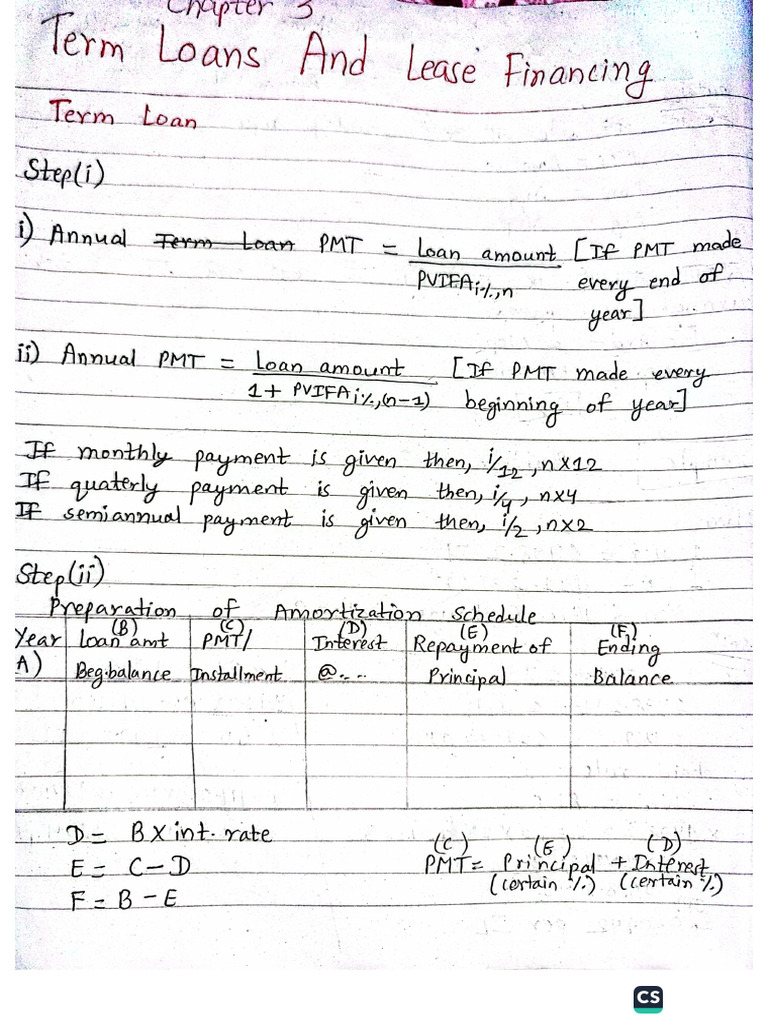 Chapter 3
Term Loans And Lease Financing
Term Loan
Step(i)
i) Annual Term Loan PMT = Loan amount [If PMT made
PVIFAi%,n every end of
year]
ii) Annual PMT = Loan amount [If PMT made every
1 + PVIFAi%,(n-1) beginning of year]
If monthly payment is given then, i/12, n×12
If quaterly payment is given then, i/4, n×4
If semiannual payment is given then, i/2, n×2
Step(ii)
Preparation of Amortization Schedule
(B) (C) (D) (E) (F)
Year Loan amt PMT/ Interest Repayment of Ending
A) Beg.balance Installment @.... Principal Balance
D = B × int. rate
E = C - D
F = B - E
(C) (E) (D)
PMT = Principal + Interest
(certain %) (certain %)
CS